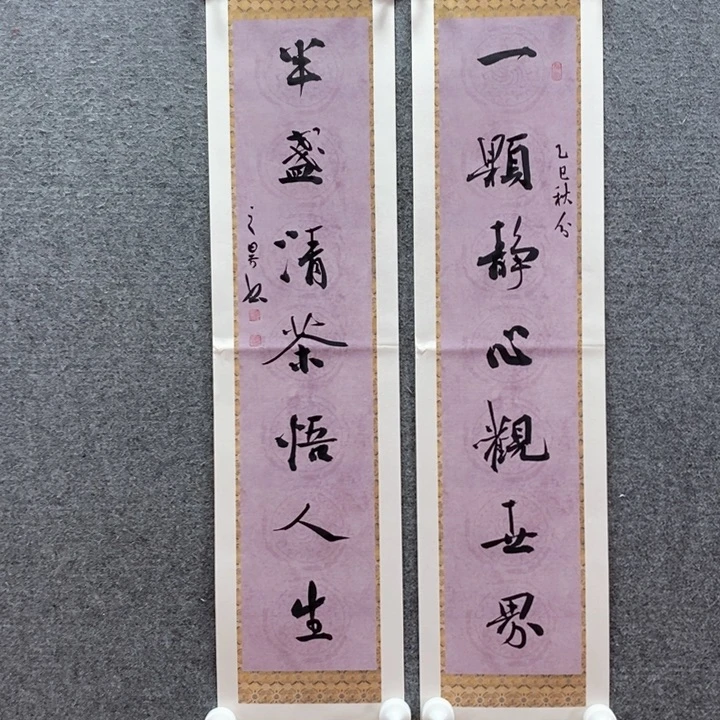 一顆静心觀世界
乙巳秋分
半盞清茶悟人生